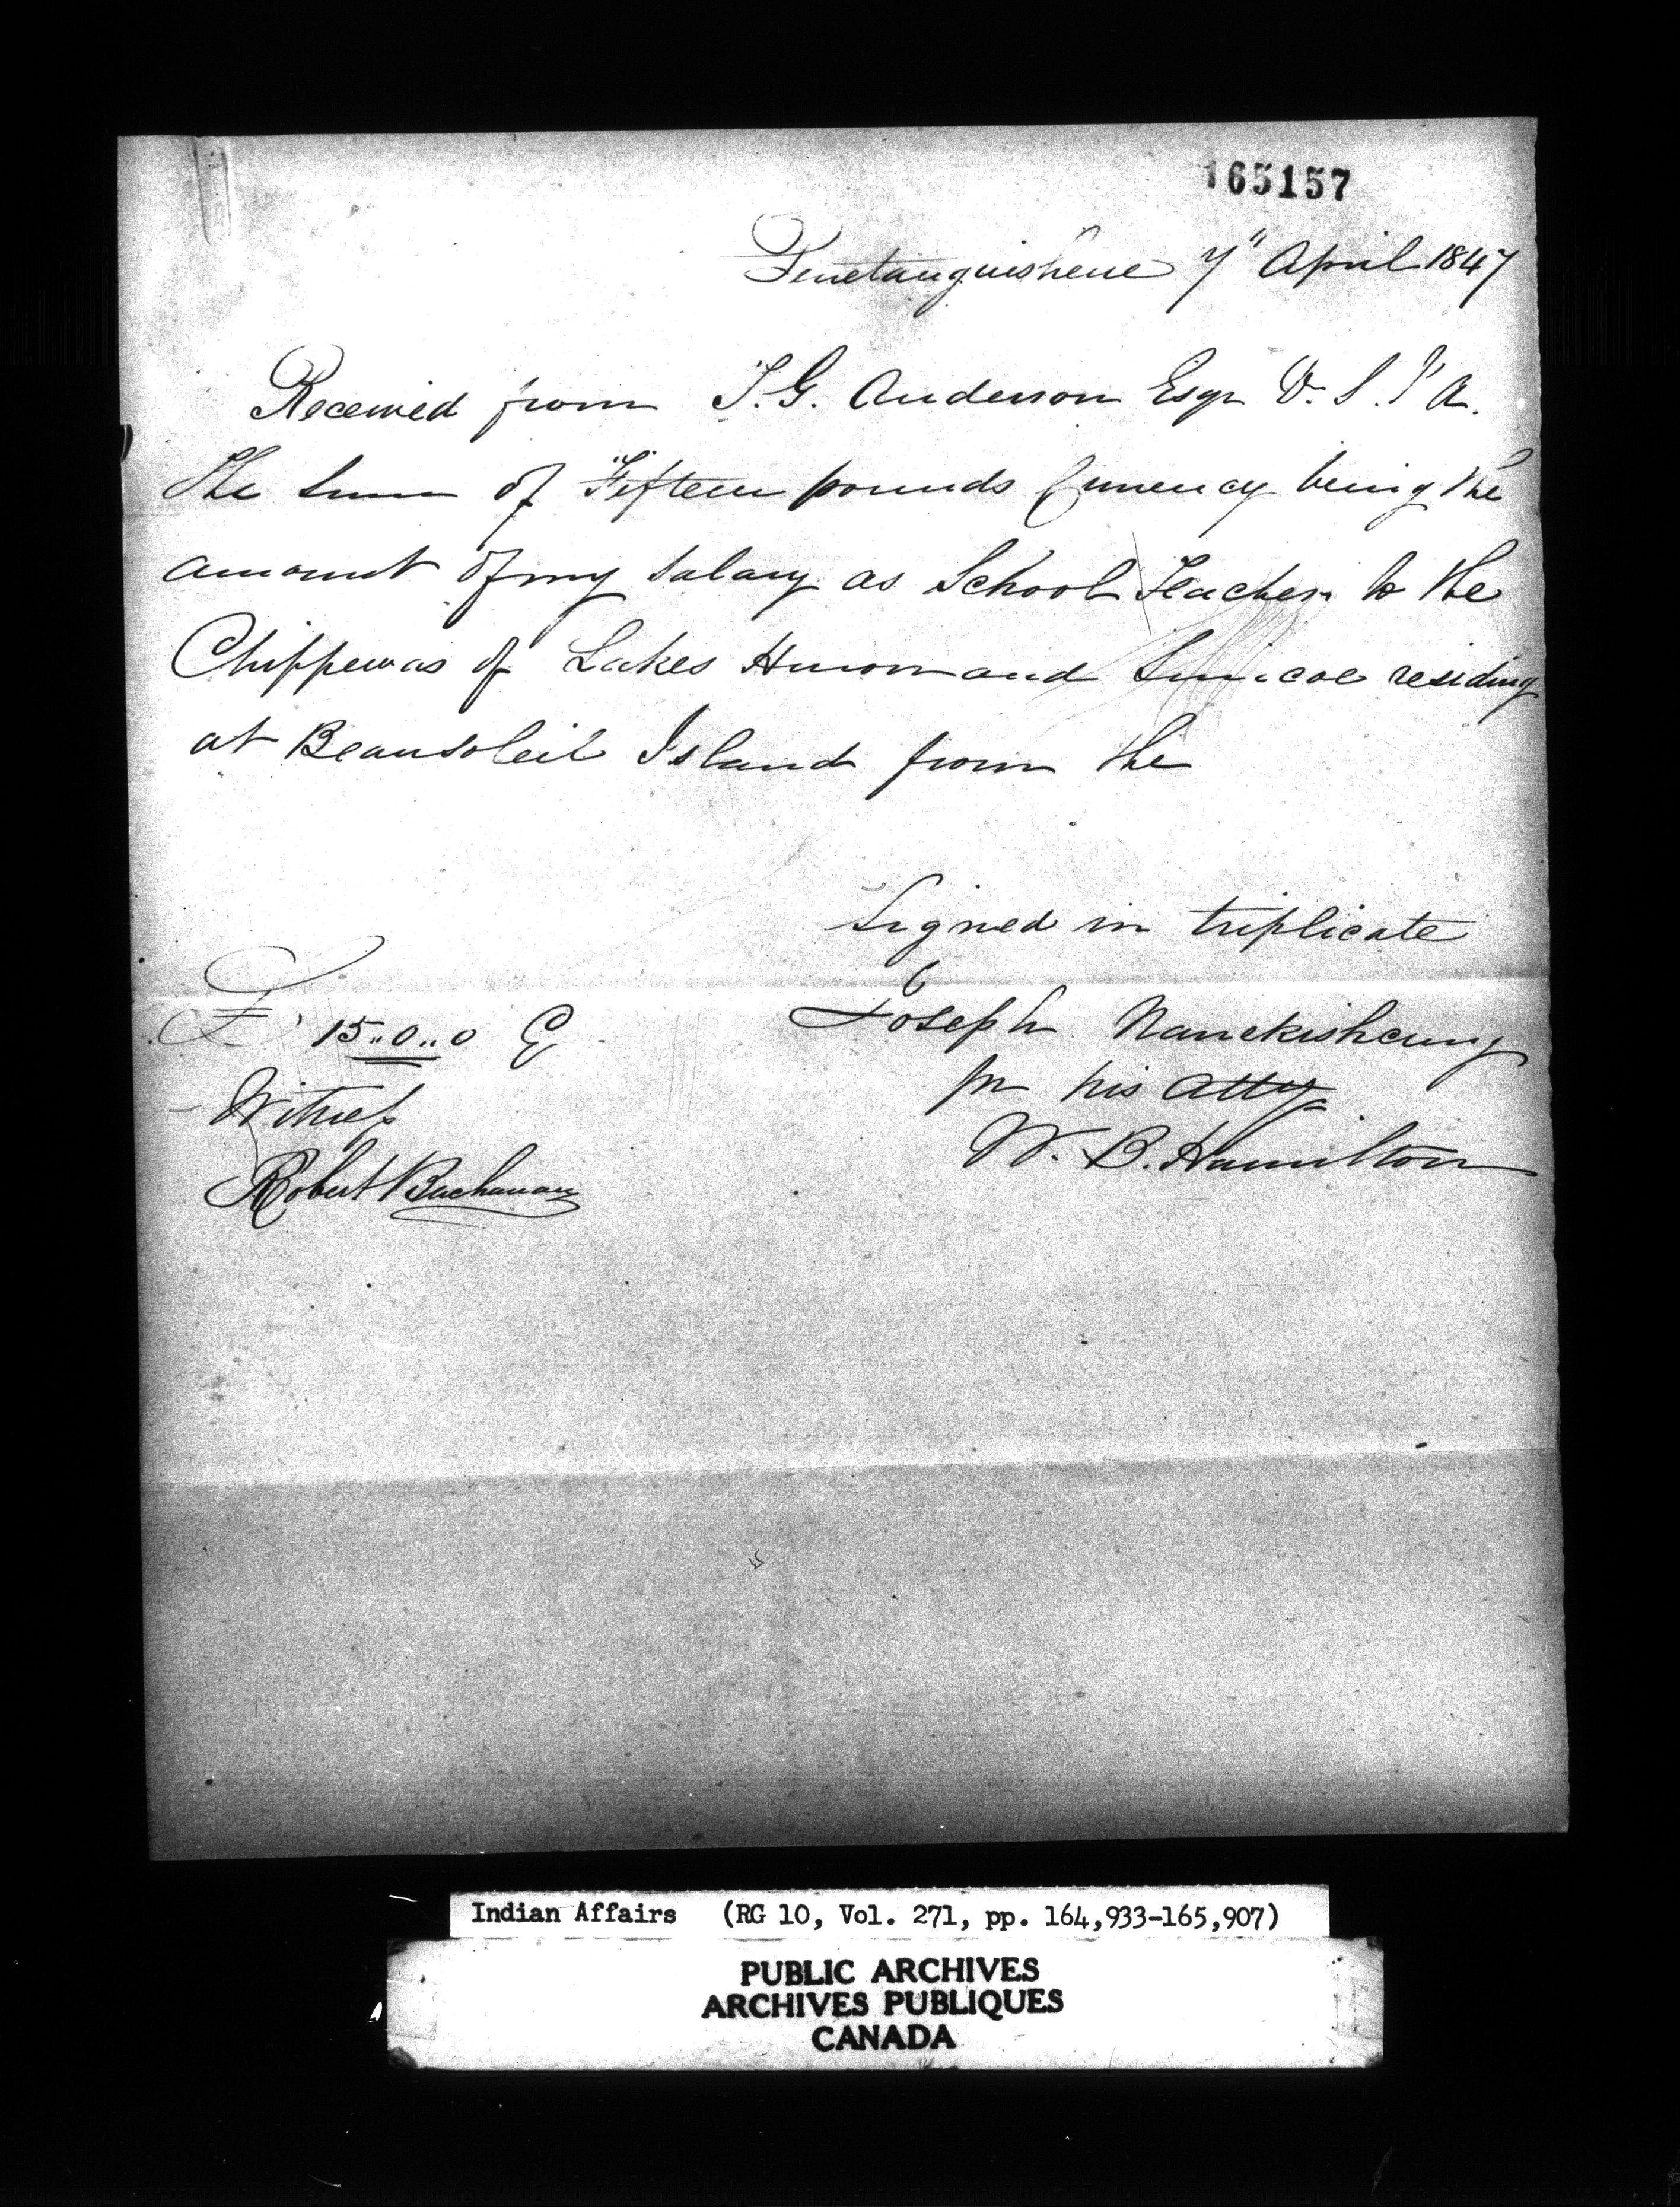 165157
Penetanguishene 7" April 1847
Received from T. G. Anderson Esqr V. S. I A.
the Sum of Fifteen pounds Currency being the
amount of my Salary as School Teacher to the
Chippewas of Lakes Huron and Simcoe residing
at Beausoleil Island from the
Signed in triplicate
£ 15..0..0 Cy
Joseph Nanekishcung
pr his atty
Witness
W. B. Hamilton
Robert Buchanan
Indian Affairs (RG 10, Vol. 271, pp. 164,933-165,907)
PUBLIC ARCHIVES
ARCHIVES PUBLIQUES
CANADA